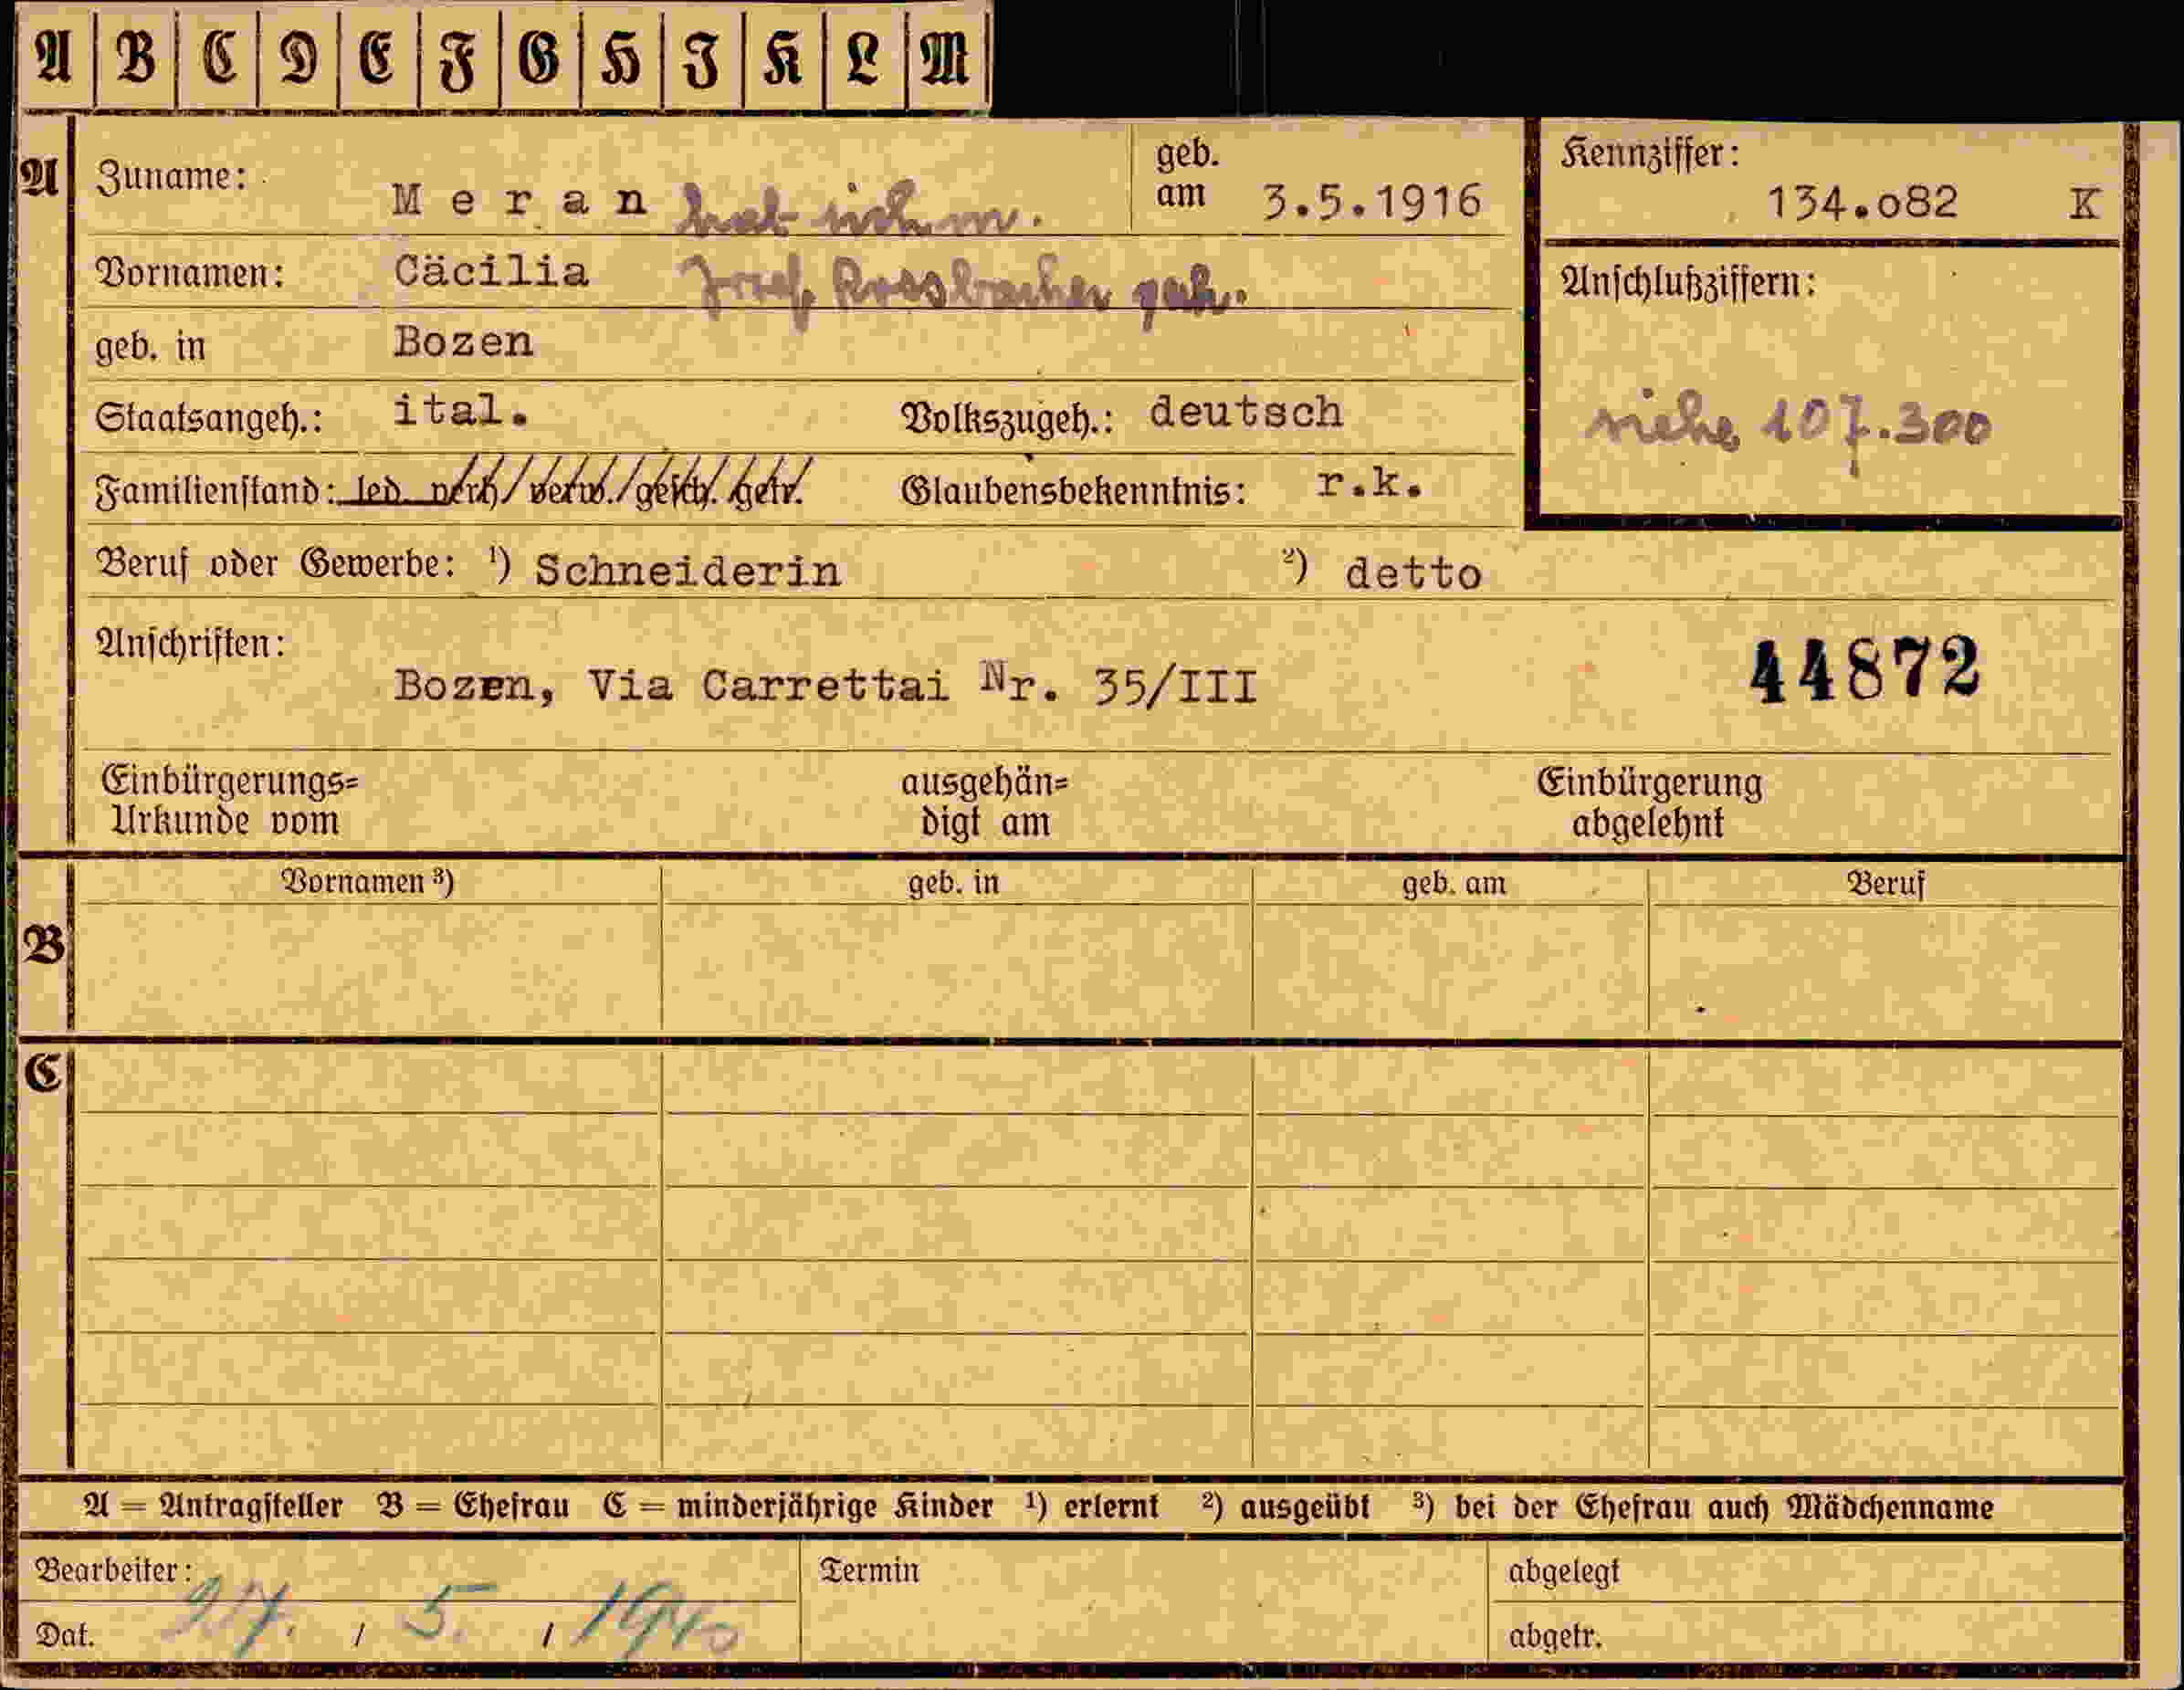 A B C D E F G H I K L M
A Zuname: Meran hat sich m. geb. am 3.5.1916 Kennziffer: 134.o82 K
Vornamen: Cäcilia Josef Rossbacher geb. in Bozen Anschlußziffern:
Staatsangeh.: ital. Volkszugeh.: deutsch siehe 107.300
Familienstand: led. verh. verw. gesch. getr. Glaubensbekenntnis: r.k.
Beruf oder Gewerbe: ¹) Schneiderin ²) detto
Anschriften:
Bozen, Via Carrettai Nr. 35/III 44872
Einbürgerungs= ausgehän= Einbürgerung
Urkunde vom digt am abgelehnt
B Vornamen ³) geb. in geb. am Beruf
C
A = Antragsteller B = Ehefrau C = minderjährige Kinder ¹) erlernt ²) ausgeübt ³) bei der Ehefrau auch Mädchenname
Bearbeiter: Termin abgelegt
Dat. / 5. / 1940 abgetr.